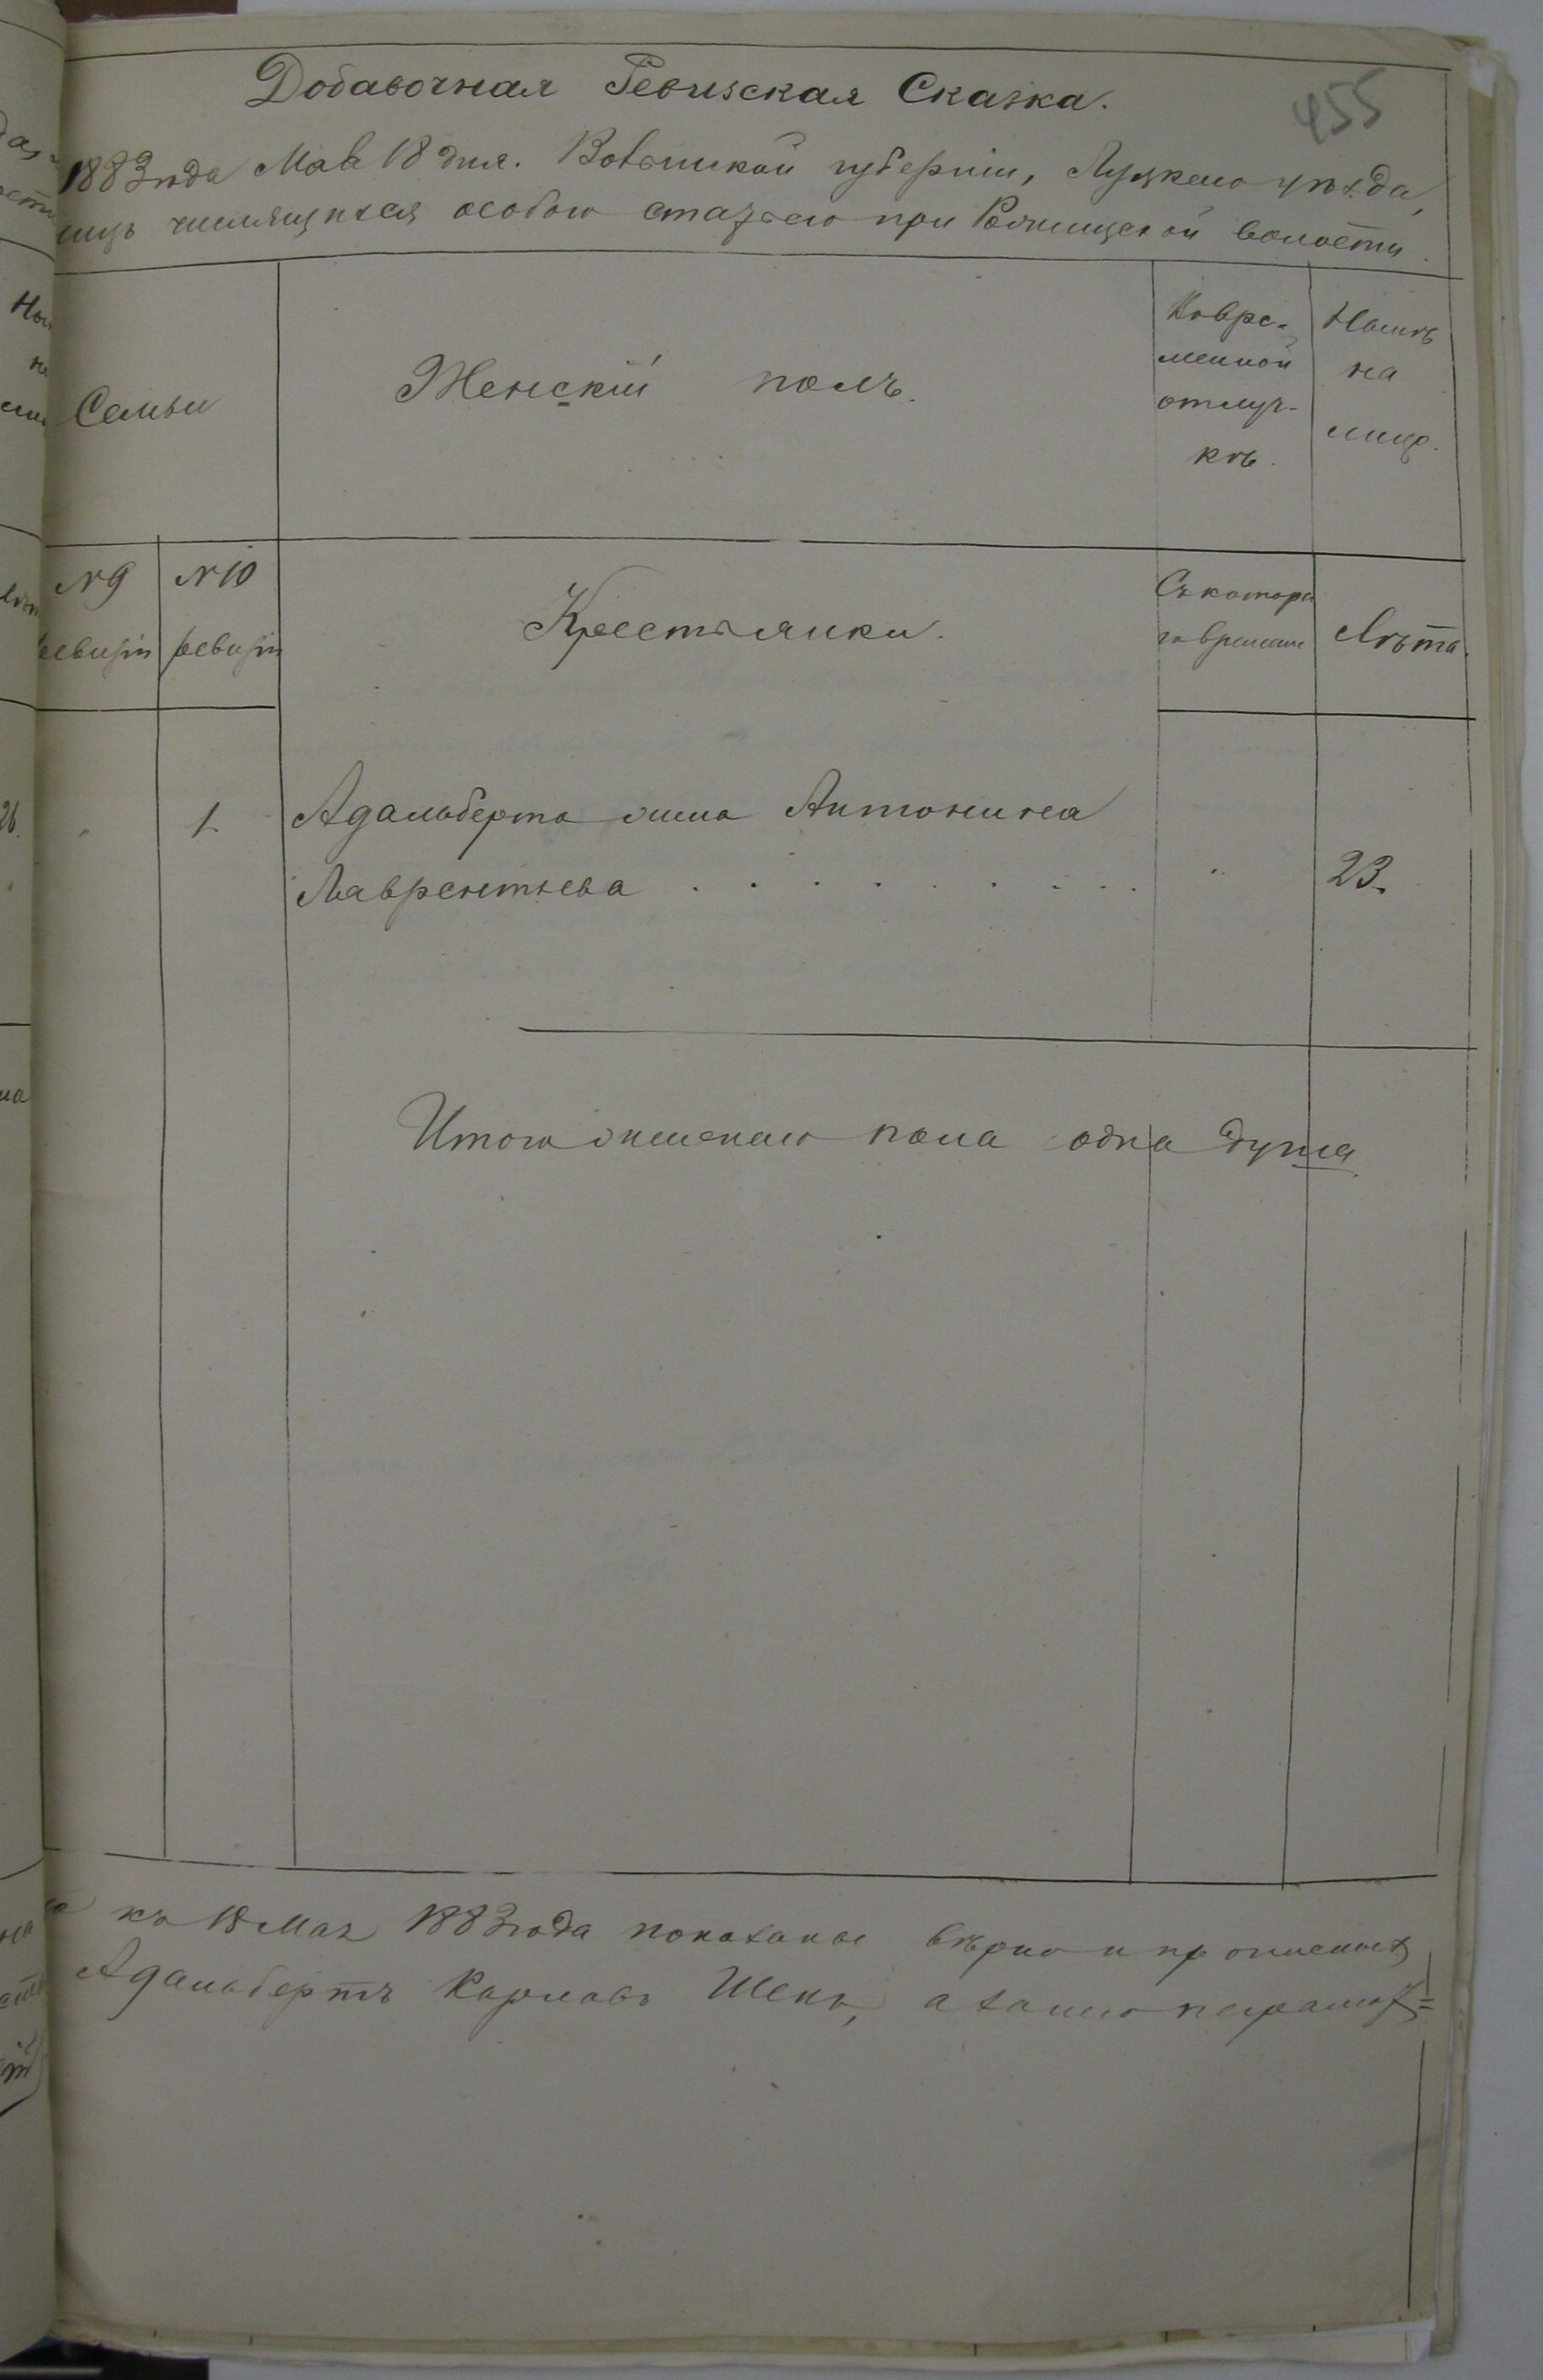 Добавочная Ревизская Сказка.
455
1883 года Мая 18 дня. Волынской губернiи, Луцкаго уѣзда,
лицъ числящихся особою статьею при Рожищской волости.
Семьи
Женскiй полъ.
Во вре-
менной
отлуч-
кѣ.
На лицо.
№ 9
ревизiи
№ 10
ревизiи
Крестьянки.
Съ котора
го времени
Лѣта.
1.
Адальберта жена Антонина
Лаврентьева . . . . . . . . "
23.
Итого женскаго пола одна душа
къ 18 Мая 1883 года показаны вѣрно и
Адальбертъ Карловъ Шенъ, а за него неграмот=